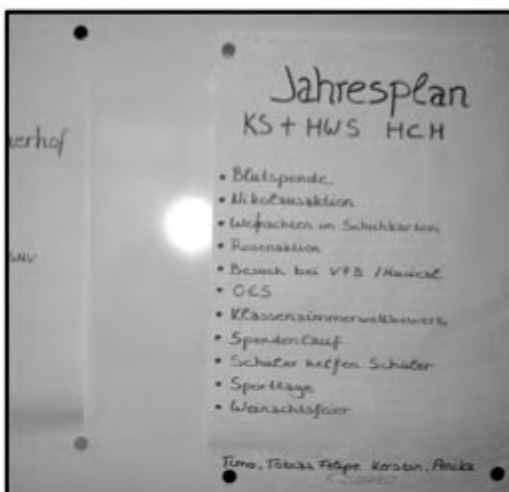 erhof
SMV
Jahresplan
KS + HWS HCH
• Blutspende
• Nikolausaktion
• Weihnachten im Schuhkarton
• Rosenaktion
• Besuch bei VFB / Musical
• OES
• Klassenzimmerwettbewerb
• Spendenlauf
• Schüler helfen Schüler
• Sporttage
• Weinachtsfeier
Timo, Tobias, Felipe, Kerstin, Anika